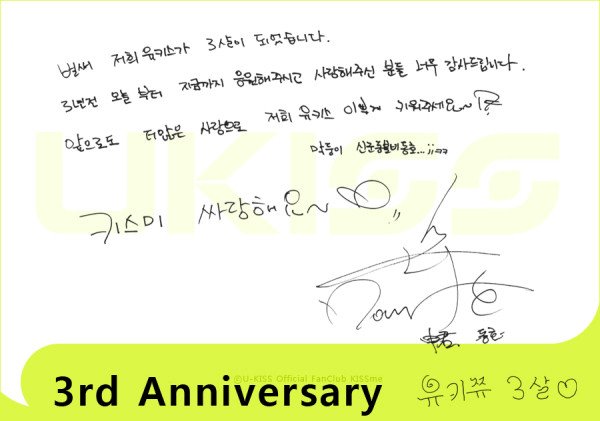 벌써 저희 유키스가 3살이 되었습니다.
3년전 오늘 부터 지금까지 응원해주시고 사랑해주신 분들 너무 감사드립니다.
앞으로도 더많은 사랑으로 저희 유키스 이쁘게 키워주세요~
막둥이 동호...;;ㅋㅋ
키스미 싸랑해요~♡,,
UKISS
동호
©U-KISS Official FanClub KISSme
3rd Anniversary
유키쮸 3살♡